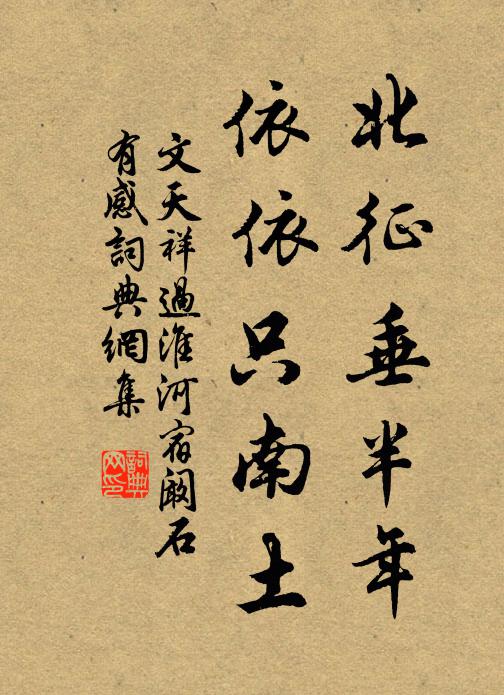 北征垂半年
依依只南土
文天祥過淮河宿阚石
有感詞典網集
詞典网印